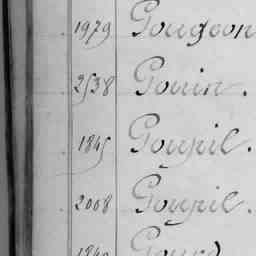 1979 Gougeon
2538 Gouin.
1845 Goupil.
2008 Goupil.
1840 Gourd